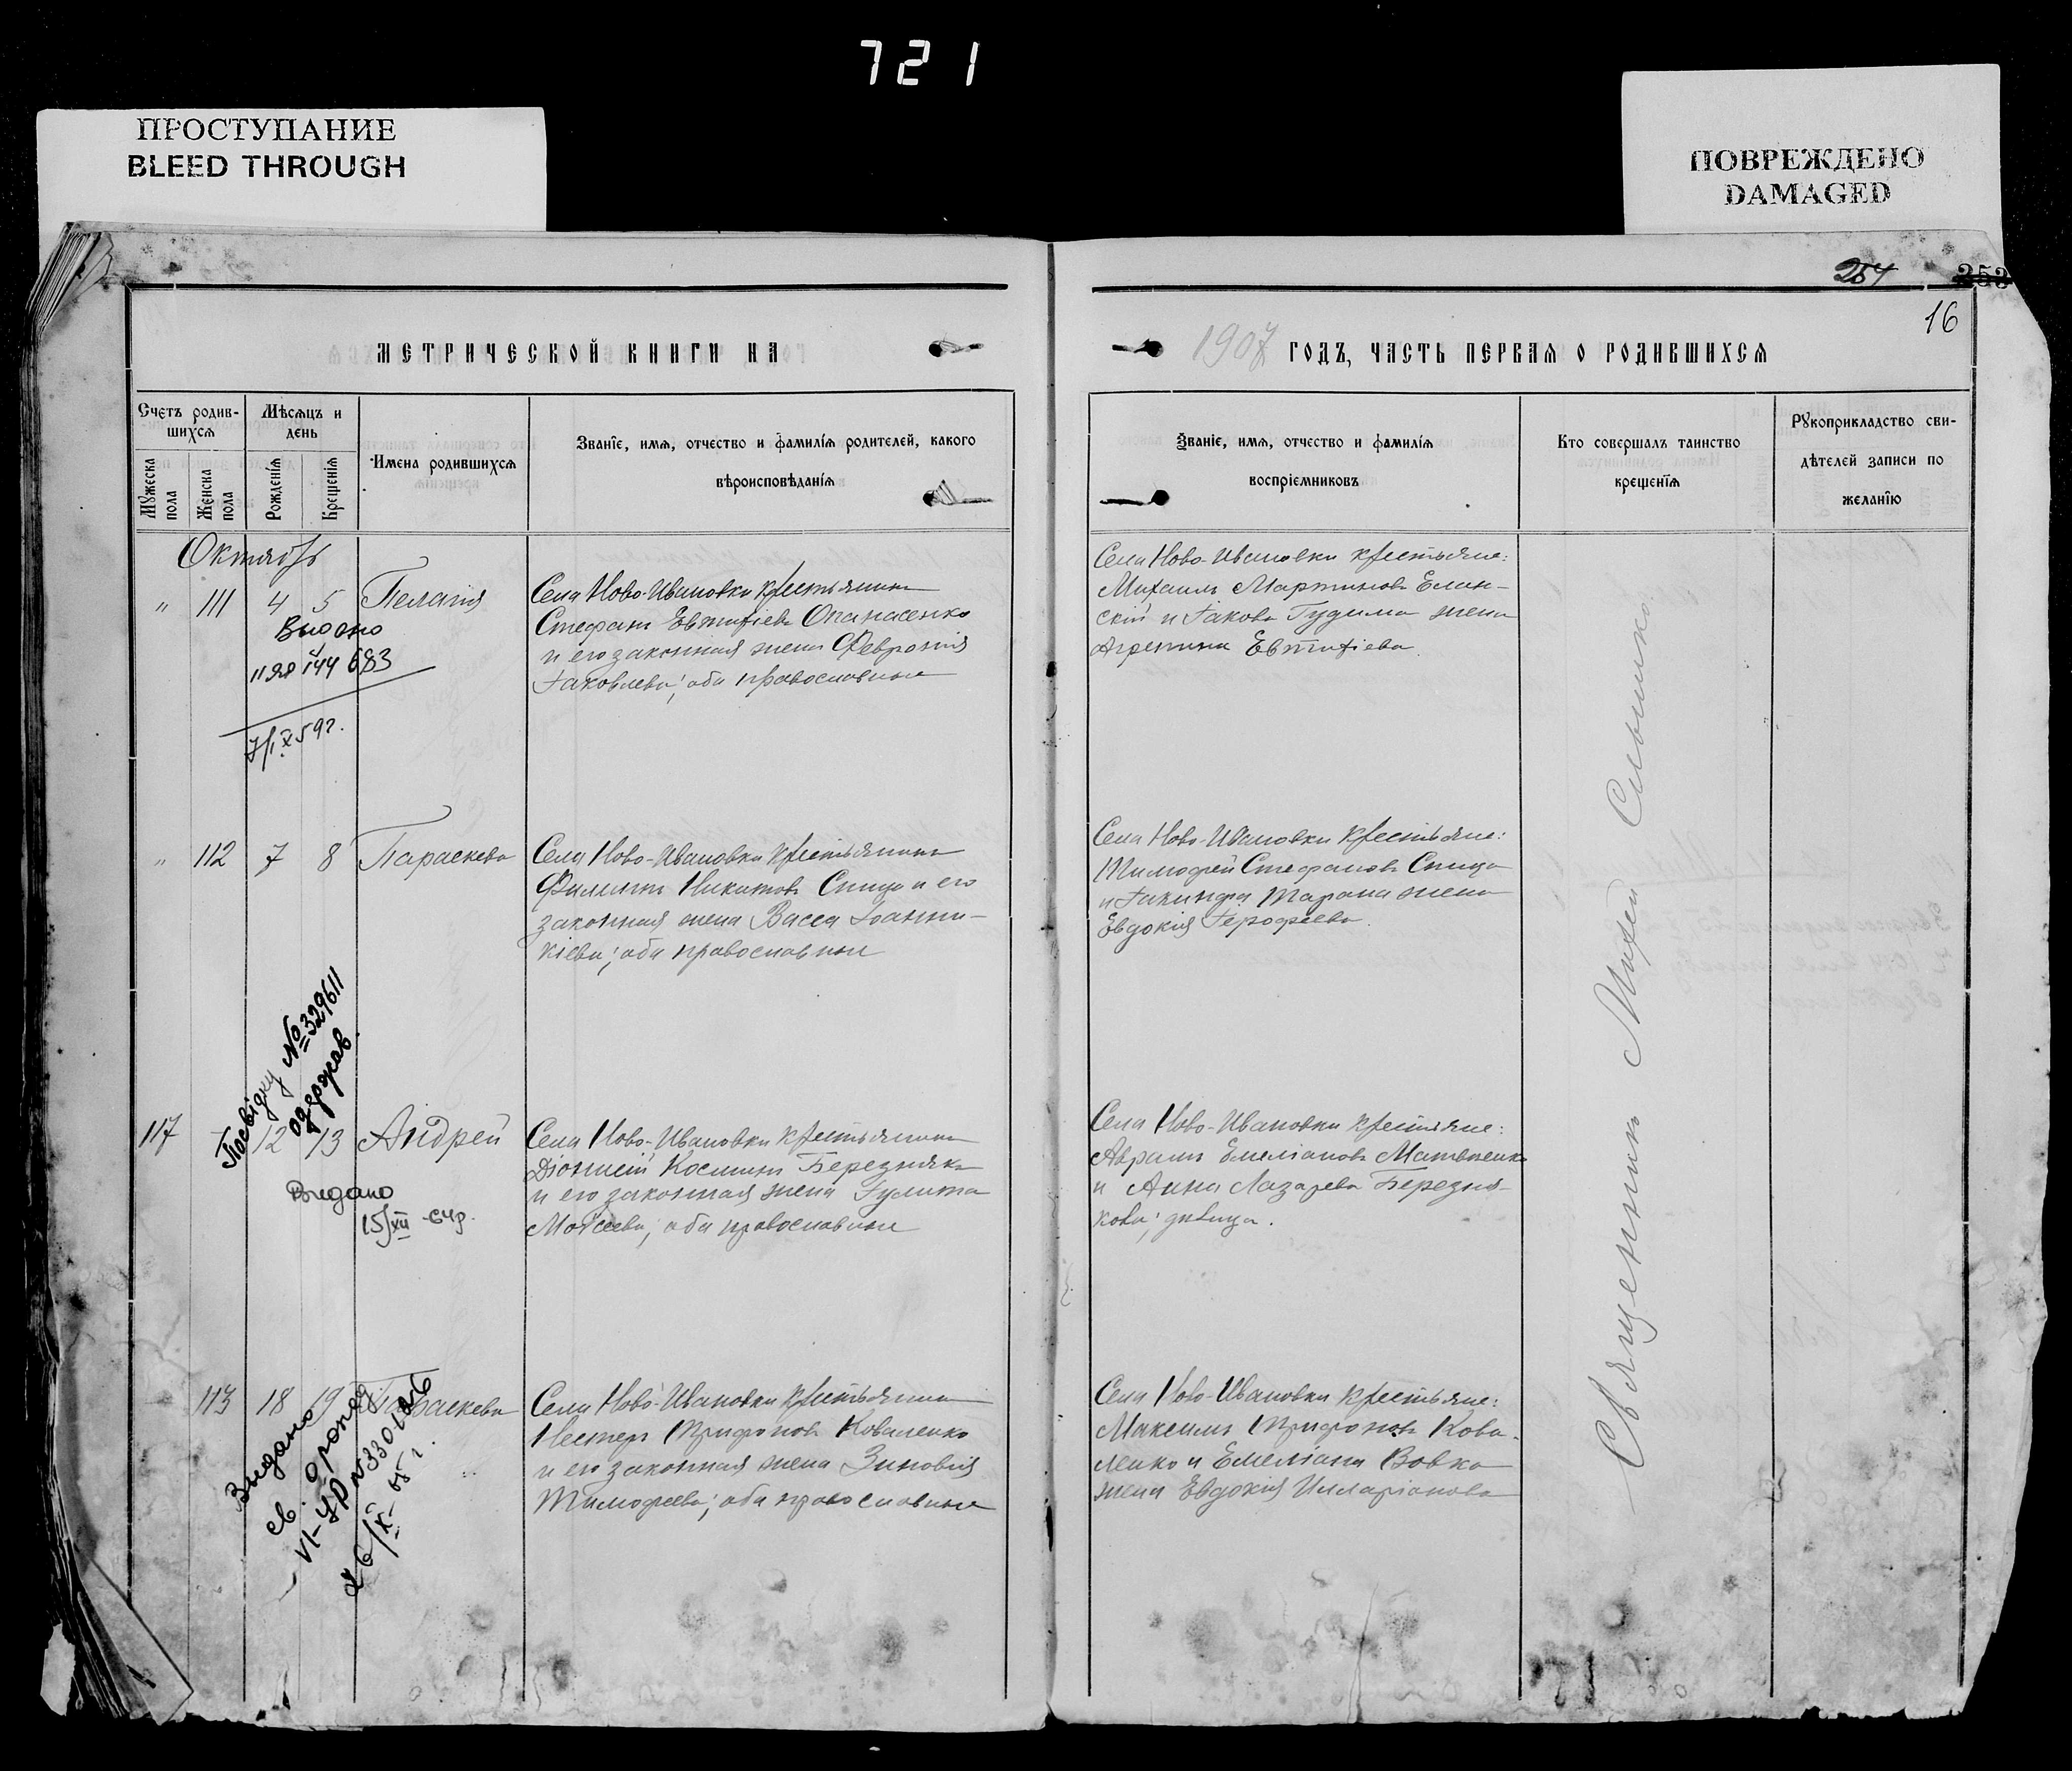 721
ПРОСТУПАНИЕ
BLEED THROUGH
ПОВРЕЖДЕНО
DAMAGED
254 253
16
МЕТРИЧЕСКОЙ КНИГИ НА
1907 ГОДЪ, ЧАСТЬ ПЕРВАЯ О РОДИВШИХСЯ
Счетъ родив-
шихся
Мужеска пола
Женска пола
Мѣсяцъ и
день
Рожденія
Крещенія
Имена родившихся
Званіе, имя, отчество и фамилія родителей, какого
вѣроисповѣданія
Званіе, имя, отчество и фамилія
воспріемниковъ
Кто совершалъ таинство
крещенія
Рукоприкладство сви-
дѣтелей записи по
желанію
Октябрь
" 111 4 5 Пелагія
Села Ново-Ивановки крестьянинъ
Стефанъ Евтихіевъ Опанасенко
и его законная жена Февронія
Іаковлева; оба православные
Села Ново-Ивановки крестьяне:
Михаилъ Мартиновъ Елин-
скій и Іакова Гудыма жена
Агрепина Евтихіева.
Видано
683
7/IX 59г.
" 112 7 8 Параскева
Села Ново-Ивановки крестьянинъ
Филиппъ Никитовъ Спица и его
законная жена Васса Іоанни-
кіева; оба православные
Села Ново-Ивановки крестьяне:
Тимофей Стефановъ Спица
и Іакинфа Тарана жена
Евдокія Іерофеева.
Посвідку №329611
одержав.
117 12 13 Андрей
Села Ново-Ивановки крестьянинъ
Діонисій Косминъ Березнякъ
и его законная жена Іулита
Моисеева; оба православные
Села Ново-Ивановки крестьяне:
Аврамъ Емеліановъ Матвіенко
и Анна Лазарева Березня-
кова; дѣвица.
Видано
15/XII -64р.
113 18 19 Параскева
Села Ново-Ивановки крестьянинъ
Несторъ Трифоновъ Коваленко
и его законная жена Зиновія
Тимофеева; оба православные
Села Ново-Ивановки крестьяне:
Максимъ Трифоновъ Кова-
ленко и Емеліана Вовка
жена Евдокія Илларіонова
Видано
св. о рожд
26/IX- 65 г.
Священникъ Михей Слышко.